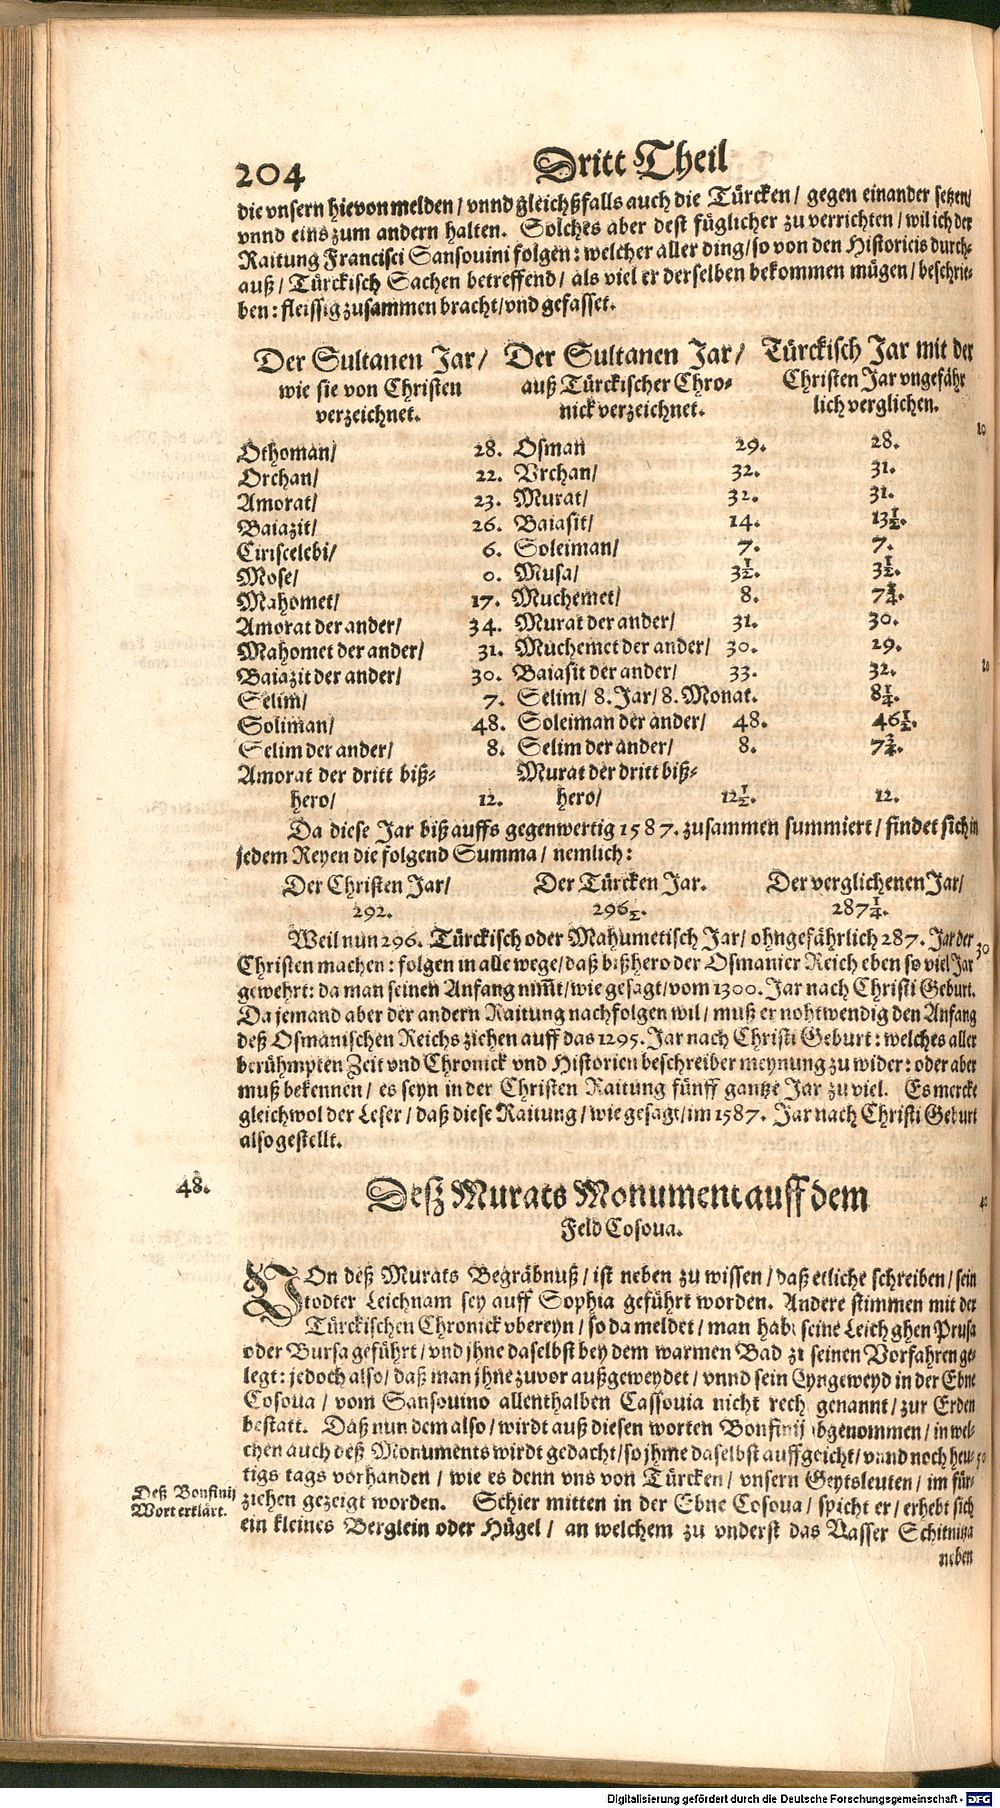 204 Dritt Theil
die vnsern hievon melden / vnnd gleichßfalls auch die Türcken / gegen einander setzen /
vnnd eins zum andern halten. Solches aber dest füglicher zu verrichten / wil ich der
Raitung Francisci Sansouini folgen : welcher aller ding / so von den Historicis durch-
auß / Türckisch Sachen betreffend / als viel er derselben bekommen mügen / beschrie-
ben : fleissig zusammen bracht / vnd gefasset.
Der Sultanen Jar / Der Sultanen Jar / Türckisch Jar mit der
wie sie von Christen auß Türckischer Chro- Christen Jar vngefähr
verzeichnet. nick verzeichnet. lich verglichen.
10
Othoman / 28. Osman 29. 28.
Orchan / 22. Vrchan / 32. 31.
Amorat / 23. Murat / 32. 31.
Baiazit / 26. Baiasit / 14. 13 1/2.
Ciriscelebi / 6. Soleiman / 7. 7.
Mose / 0. Musa / 3 1/2. 3 1/2.
Mahomet / 17. Muchemet / 8. 7 3/4.
Amorat der ander / 34. Murat der ander / 31. 30.
Mahomet der ander / 31. Muchemet der ander / 30. 29.
20
Baiazit der ander / 30. Baiasit der ander / 33. 32.
Selim / 7. Selim / 8. Jar / 8. Monat. 8 1/4.
Soliman / 48. Soleiman der ander / 48. 46 1/2.
Selim der ander / 8. Selim der ander / 8. 7 3/4.
Amorat der dritt biß- Murat der dritt biß-
hero / 12. hero / 12 1/2. 12.
Da diese Jar biß auffs gegenwertig 1587. zusammen summiert / findet sich in
jedem Reyen die folgend Summa / nemlich :
Der Christen Jar / Der Türcken Jar. Der verglichenen Jar /
292. 296 1/2. 287 1/4.
Weil nun 296. Türckisch oder Mahumetisch Jar / ohngefährlich 287. Jar der 30
Christen machen : folgen in alle wege / daß bißhero der Osmanier Reich eben so viel Jar
gewehrt : da man seinen Anfang nim̃t / wie gesagt / vom 1300. Jar nach Christi Geburt.
Da jemand aber der andern Raitung nachfolgen wil / muß er nohtwendig den Anfang
deß Osmanischen Reichs ziehen auff das 1295. Jar nach Christi Geburt : welches aller
berühmpten Zeit vnd Chronick vnd Historien beschreiber meynung zu wider : oder aber
muß bekennen / es seyn in der Christen Raitung fünff gantze Jar zu viel. Es mercke
gleichwol der Leser / daß diese Raitung / wie gesagt / im 1587. Jar nach Christi Geburt
also gestellt.
48. Deß Murats Monument auff dem 40
Feld Cosoua.
VOn deß Murats Begräbnuß / ist neben zu wissen / daß etliche schreiben / sein
todter Leichnam sey auff Sophia geführt worden. Andere stimmen mit der
Türckischen Chronick vbereyn / so da meldet / man hab seine Leich ghen Prusa
oder Bursa geführt / vnd jhne daselbst bey dem warmen Bad zu seinen Vorfahren ge-
legt : jedoch also / daß man jhne zuvor außgeweydet / vnnd sein Eyngeweyd in der Ebne
Cosoua / vom Sansouino allenthalben Cassouia nicht recht genannt / zur Erden
bestatt. Daß nun dem also / wirdt auß diesen worten Bonfinij abgenommen / in wel-
chen auch deß Monuments wirdt gedacht / so jhme daselbst auffgericht / vnnd noch heu- 50
tigs tags vorhanden / wie es denn vns von Türcken / vnsern Geytsleuten / im für-
Deß Bonfinij
Wort erklärt.
ziehen gezeigt worden. Schier mitten in der Ebne Cosoua / spicht er / erhebt sich
ein kleines Berglein oder Hügel / an welchem zu vnderst das Wasser Schitniza
neben
Digitalisierung gefördert durch die Deutsche Forschungsgemeinschaft - DFG